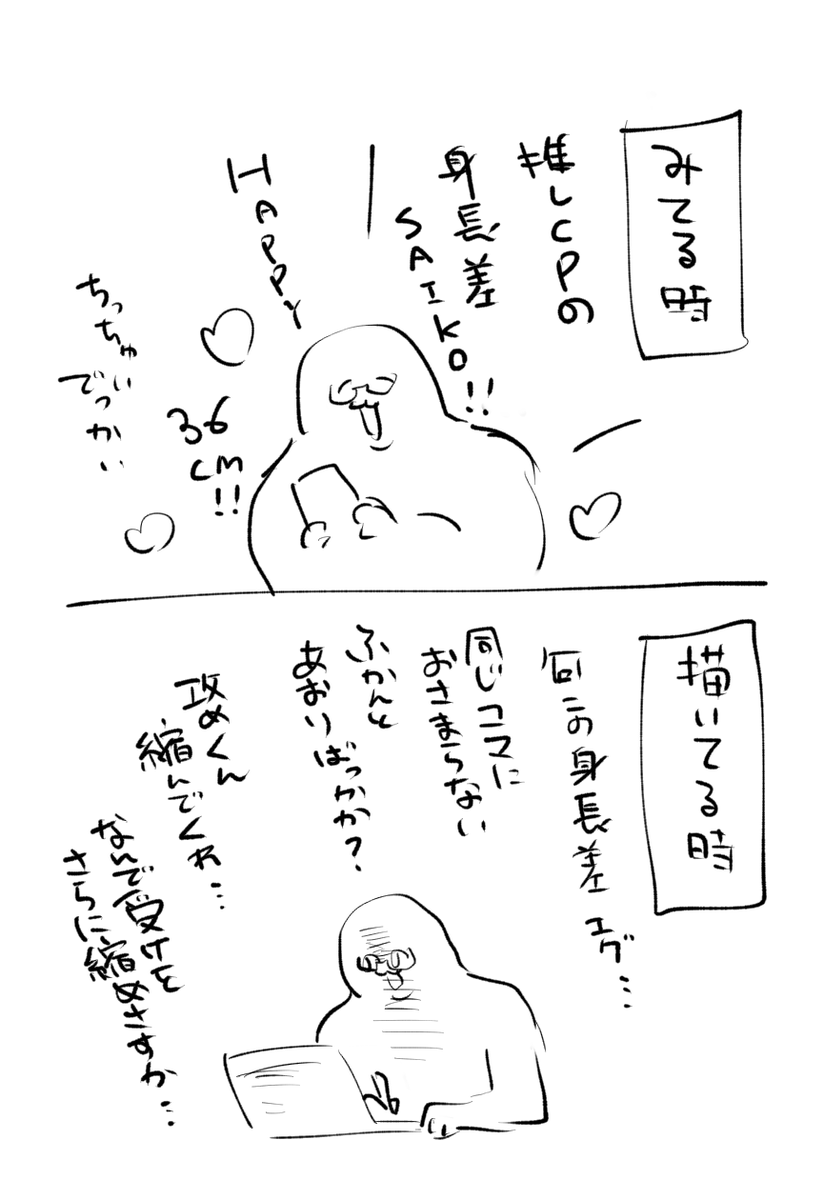 みてる時
推しCPの
身長差
SAIKO!!
HAPPY
36cm!!
ちっちゃい
でっかい
描いてる時
何この身長差エグ…
同じコマに
おさまらない
ふかんと
あおりばっかか?
攻めくん
縮んでくれ…
なんで受けを
さらに縮めさすか…